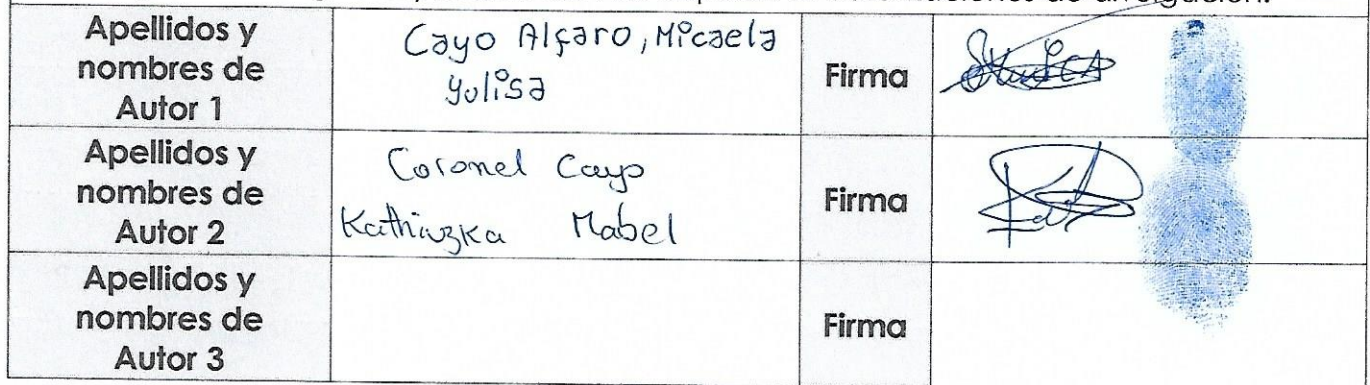 Apellidos y
nombres de
Autor 1
Cayo Alfaro, Micaela
Yulisa
Firma
Apellidos y
nombres de
Autor 2
Coronel Cayo
Kathiuzka Mabel
Firma
Apellidos y
nombres de
Autor 3
Firma